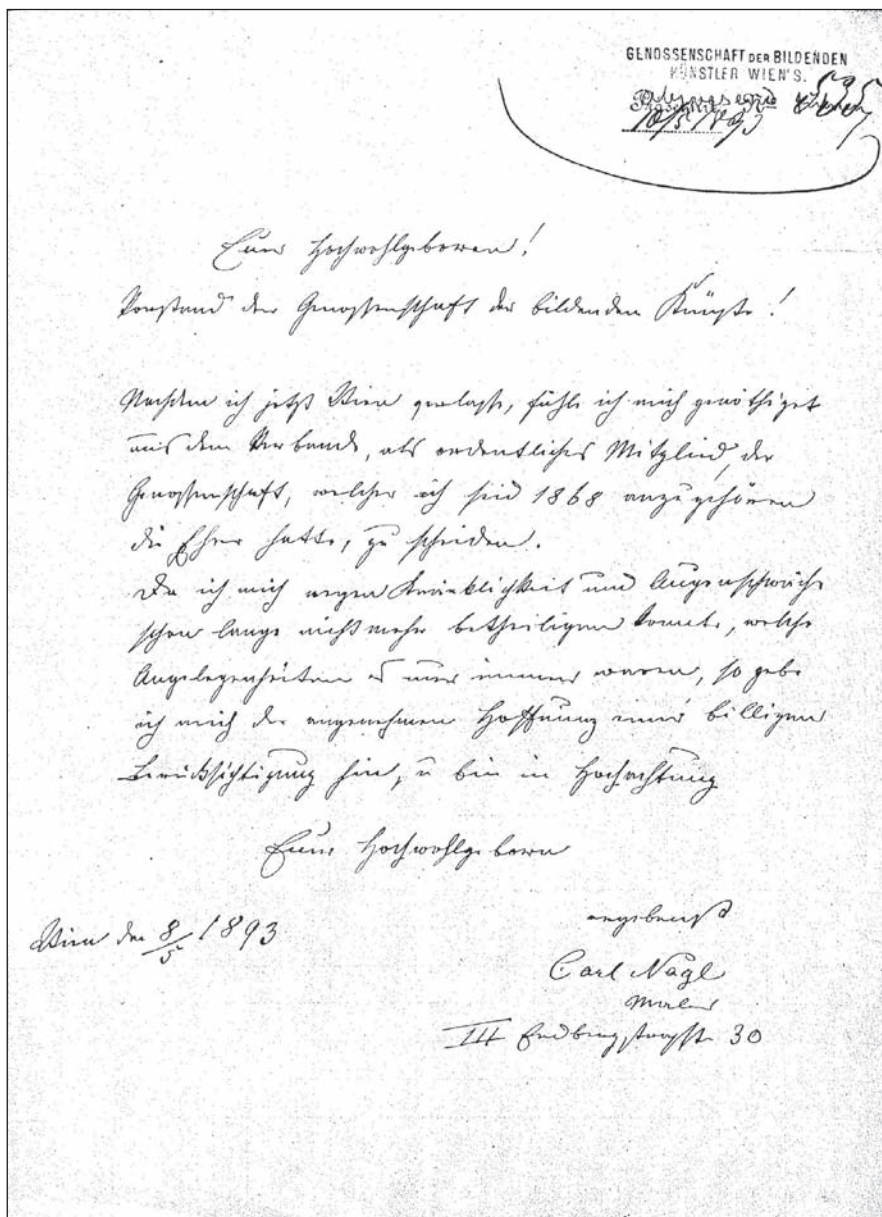 GENOSSENSCHAFT DER BILDENDEN
KÜNSTLER WIEN'S.
535
10/5 1893
Euer Hochwohlgeboren!
Vorstand der Genossenschaft der bildenden Künste!
Nachdem ich jetzt Wien verlasse, fühle ich mich genöthiget
aus dem Verbande, als ordentliches Mitglied, der
Genossenschaft, welcher ich seid 1868 anzugehören
die Ehre hatte, zu scheiden.
Da ich mich wegen Kränklichkeit und Augenschwäche
schon lange nicht mehr betheiligen konnte, welche
Angelegenheiten es nur immer waren, so gebe
ich mich der angenehmen Hoffnung einer billigen
Berücksichtigung hin, u bin in Hochachtung
Euer Hochwohlgeborn
ergebenst
Wien den 8/5 1893
Carl Nagl
Maler
III Erdbergstrasse 30